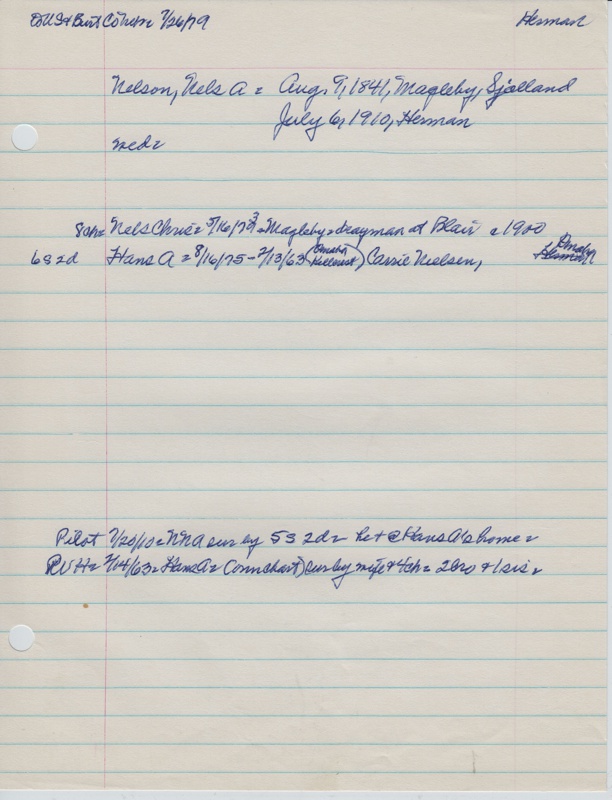 Herman
Nelson, Nels A = Aug. 9, 1841, Magleby, Sjolland
July 6, 1910, Herman
wed =
8 ch = Nels Chris = 5/16/73 = Magleby = drayman at Blair c 1900
6s 2d Hans A = 8/16/75 - 2/13/63 (Omaha Hillcrest) Carrie Nielsen, Omaha
Herman
Pilot 7/20/10 = NNA sur by 5s 2d = let @ Hans A's home =
2/14/63 = Hans A = sur by wife & 4 ch = 2 bro & 1 sis =